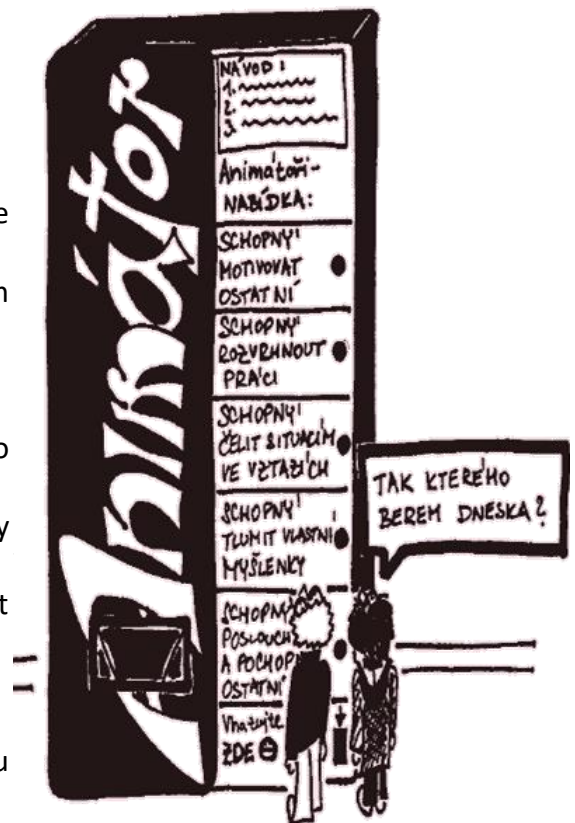 Animátor
NÁVOD:
1.
2.
3.
Animátoři-
NABÍDKA:
SCHOPNÝ
MOTIVOVAT
OSTATNÍ
SCHOPNÝ
ROZVRHNOUT
PRÁCI
SCHOPNÝ
ČELIT SITUACÍM
VE VZTAZÍCH
SCHOPNÝ
TLUMIT VLASTNÍ
MYŠLENKY
SCHOPNÝ
POSLOUCH
A POCHOP
OSTATNÍ
Vhazujte
ZDE
TAK KTERÉHO
BEREM DNESKA?